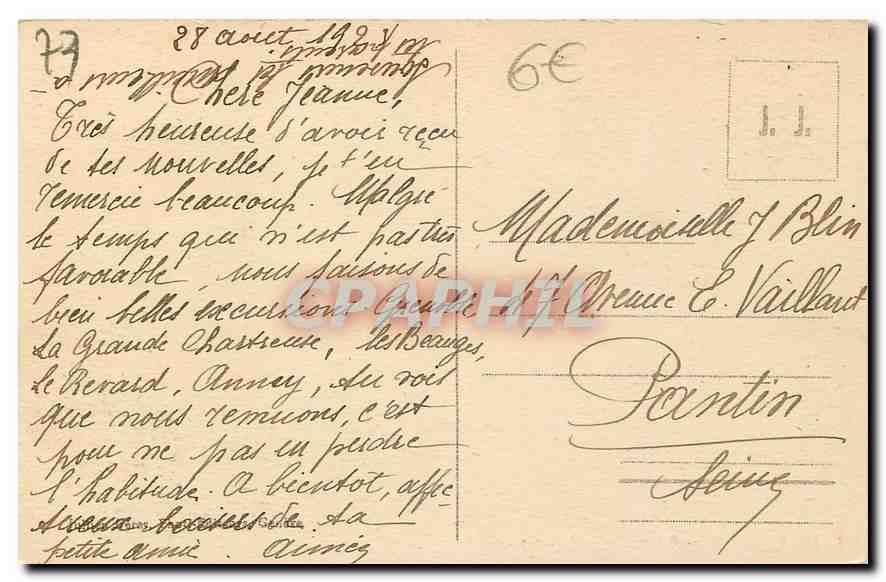 73
28 août 192
6€
Chère Jeanne,
Très heureuse d'avoir reçu
de tes nouvelles, je t'en
remercie beaucoup. Malgré
le temps qui n'est pas très
favorable, nous faisons de
bien belles excursions Grenoble
La Grande Chartreuse, les Beauges,
Le Revard, Annecy, tu vois
que nous remuons, c'est
pour ne pas en perdre
l'habitude. A bientôt, affec-
tueux baisers de ta
petite amie. Aimée
Mademoiselle J Blin
Avenue E. Vaillant
Pantin
Seine
CPAPHIL